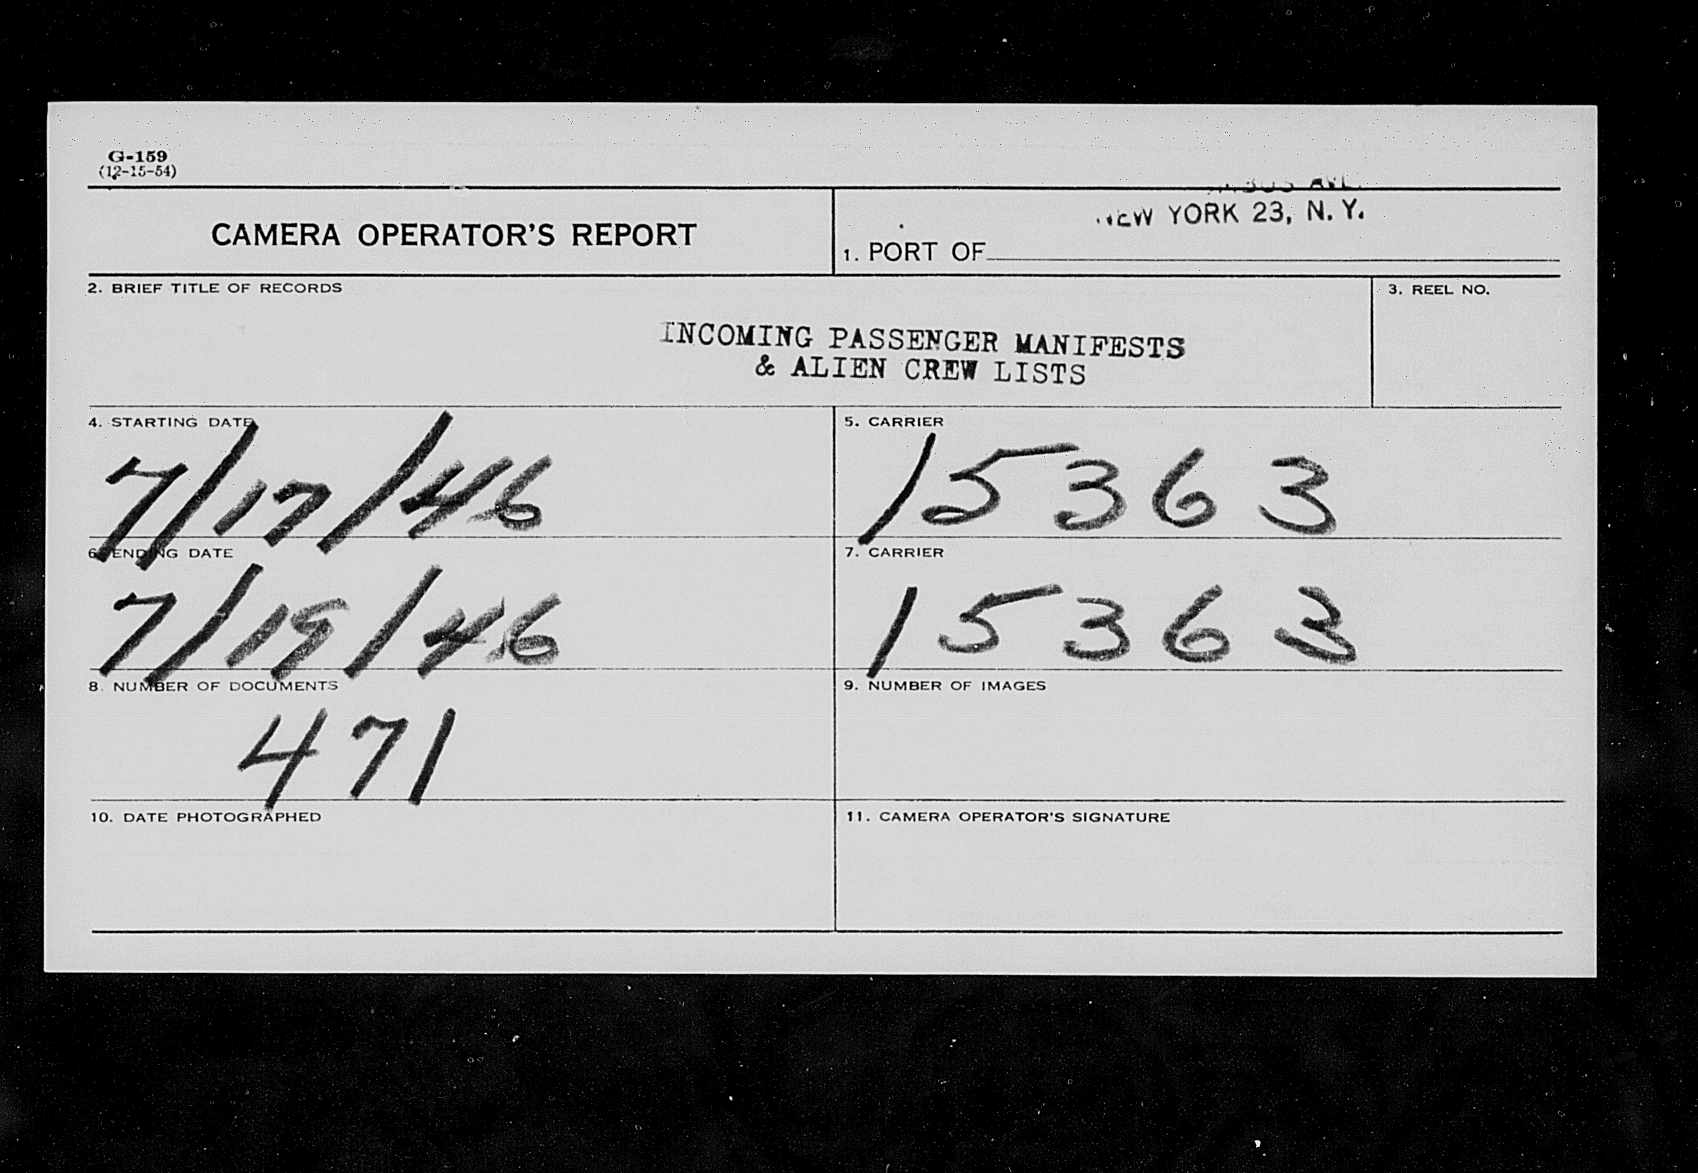 G-159
(12-15-54)
AVE.
NEW YORK 23, N.Y.
CAMERA OPERATOR'S REPORT
1. PORT OF
2. BRIEF TITLE OF RECORDS
3. REEL NO.
INCOMING PASSENGER MANIFESTS
& ALIEN CREW LISTS
4. STARTING DATE
5. CARRIER
7/17/46
15363
6. ENDING DATE
7. CARRIER
7/19/46
15363
8. NUMBER OF DOCUMENTS
9. NUMBER OF IMAGES
471
10. DATE PHOTOGRAPHED
11. CAMERA OPERATOR'S SIGNATURE